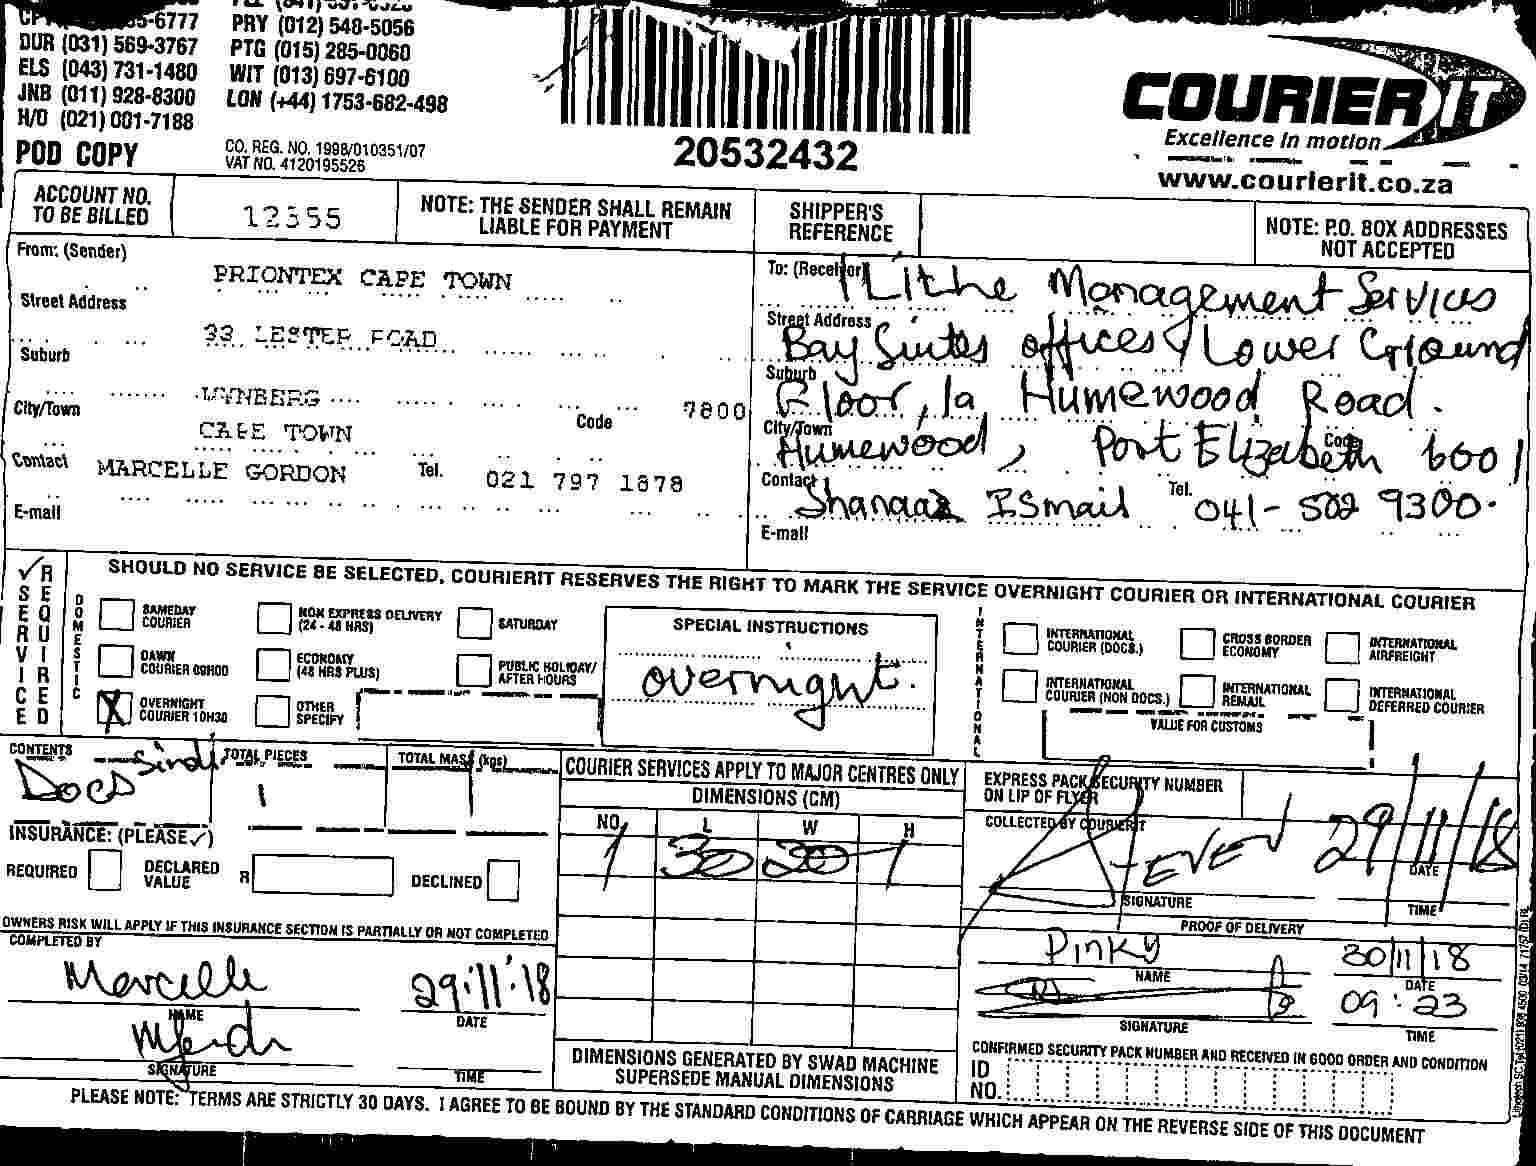 DUR (031) 569-3767
ELS (043) 731-1480
JNB (011) 928-8300
H/O (021) 001-7188
PRY (012) 548-5056
PTG (015) 285-0060
WIT (013) 697-6100
LON (+44) 1753-682-498
POD COPY
CO. REG. NO. 1998/010351/07
VAT NO. 4120195526
20532432
COURIER IT
Excellence in motion
www.courierit.co.za
ACCOUNT NO. TO BE BILLED
12355
NOTE: THE SENDER SHALL REMAIN LIABLE FOR PAYMENT
SHIPPER'S REFERENCE
NOTE: P.O. BOX ADDRESSES NOT ACCEPTED
From: (Sender)
PRIONTEX CAPE TOWN
Street Address
33 LESTER ROAD
Suburb
WYNBERG
City/Town
CAPE TOWN
Code 7800
Contact MARCELLE GORDON Tel. 021 797 1878
E-mail
To: (Receiver) Lithe Management Services
Street Address
Bay Suites offices, Lower Ground
Suburb
Floor, 1a Humewood Road.
City/Town
Humewood, Port Elizabeth Code 6001
Contact Shanaaz Ismail Tel. 041-502 9300.
E-mail
SERVICE REQUIRED
SHOULD NO SERVICE BE SELECTED, COURIERIT RESERVES THE RIGHT TO MARK THE SERVICE OVERNIGHT COURIER OR INTERNATIONAL COURIER
DOMESTIC
SAMEDAY COURIER
NON EXPRESS DELIVERY (24 - 48 HRS)
SATURDAY
DAWN COURIER 09H00
ECONOMY (48 HRS PLUS)
PUBLIC HOLIDAY/ AFTER HOURS
X OVERNIGHT COURIER 10H30
OTHER SPECIFY
SPECIAL INSTRUCTIONS
overnight.
INTERNATIONAL
INTERNATIONAL COURIER (DOCS.)
CROSS BORDER ECONOMY
INTERNATIONAL AIRFREIGHT
INTERNATIONAL COURIER (NON DOCS.)
INTERNATIONAL REMAIL
INTERNATIONAL DEFERRED COURIER
VALUE FOR CUSTOMS
CONTENTS
Docs
TOTAL PIECES
1
TOTAL MASS (kgs)
1
INSURANCE: (PLEASE ✓)
REQUIRED
DECLARED VALUE R
DECLINED
OWNERS RISK WILL APPLY IF THIS INSURANCE SECTION IS PARTIALLY OR NOT COMPLETED
COMPLETED BY
Marcelle
NAME
29.11.18
DATE
SIGNATURE
TIME
COURIER SERVICES APPLY TO MAJOR CENTRES ONLY
DIMENSIONS (CM)
NO. L W H
1 30 20 1
DIMENSIONS GENERATED BY SWAD MACHINE SUPERSEDE MANUAL DIMENSIONS
EXPRESS PACK SECURITY NUMBER ON LIP OF FLYER
COLLECTED BY COURIERIT
29/11/18
DATE
SIGNATURE
TIME
PROOF OF DELIVERY
Pinky
NAME
30/11/18
DATE
09:23
SIGNATURE
TIME
CONFIRMED SECURITY PACK NUMBER AND RECEIVED IN GOOD ORDER AND CONDITION
ID NO.
PLEASE NOTE: TERMS ARE STRICTLY 30 DAYS. I AGREE TO BE BOUND BY THE STANDARD CONDITIONS OF CARRIAGE WHICH APPEAR ON THE REVERSE SIDE OF THIS DOCUMENT